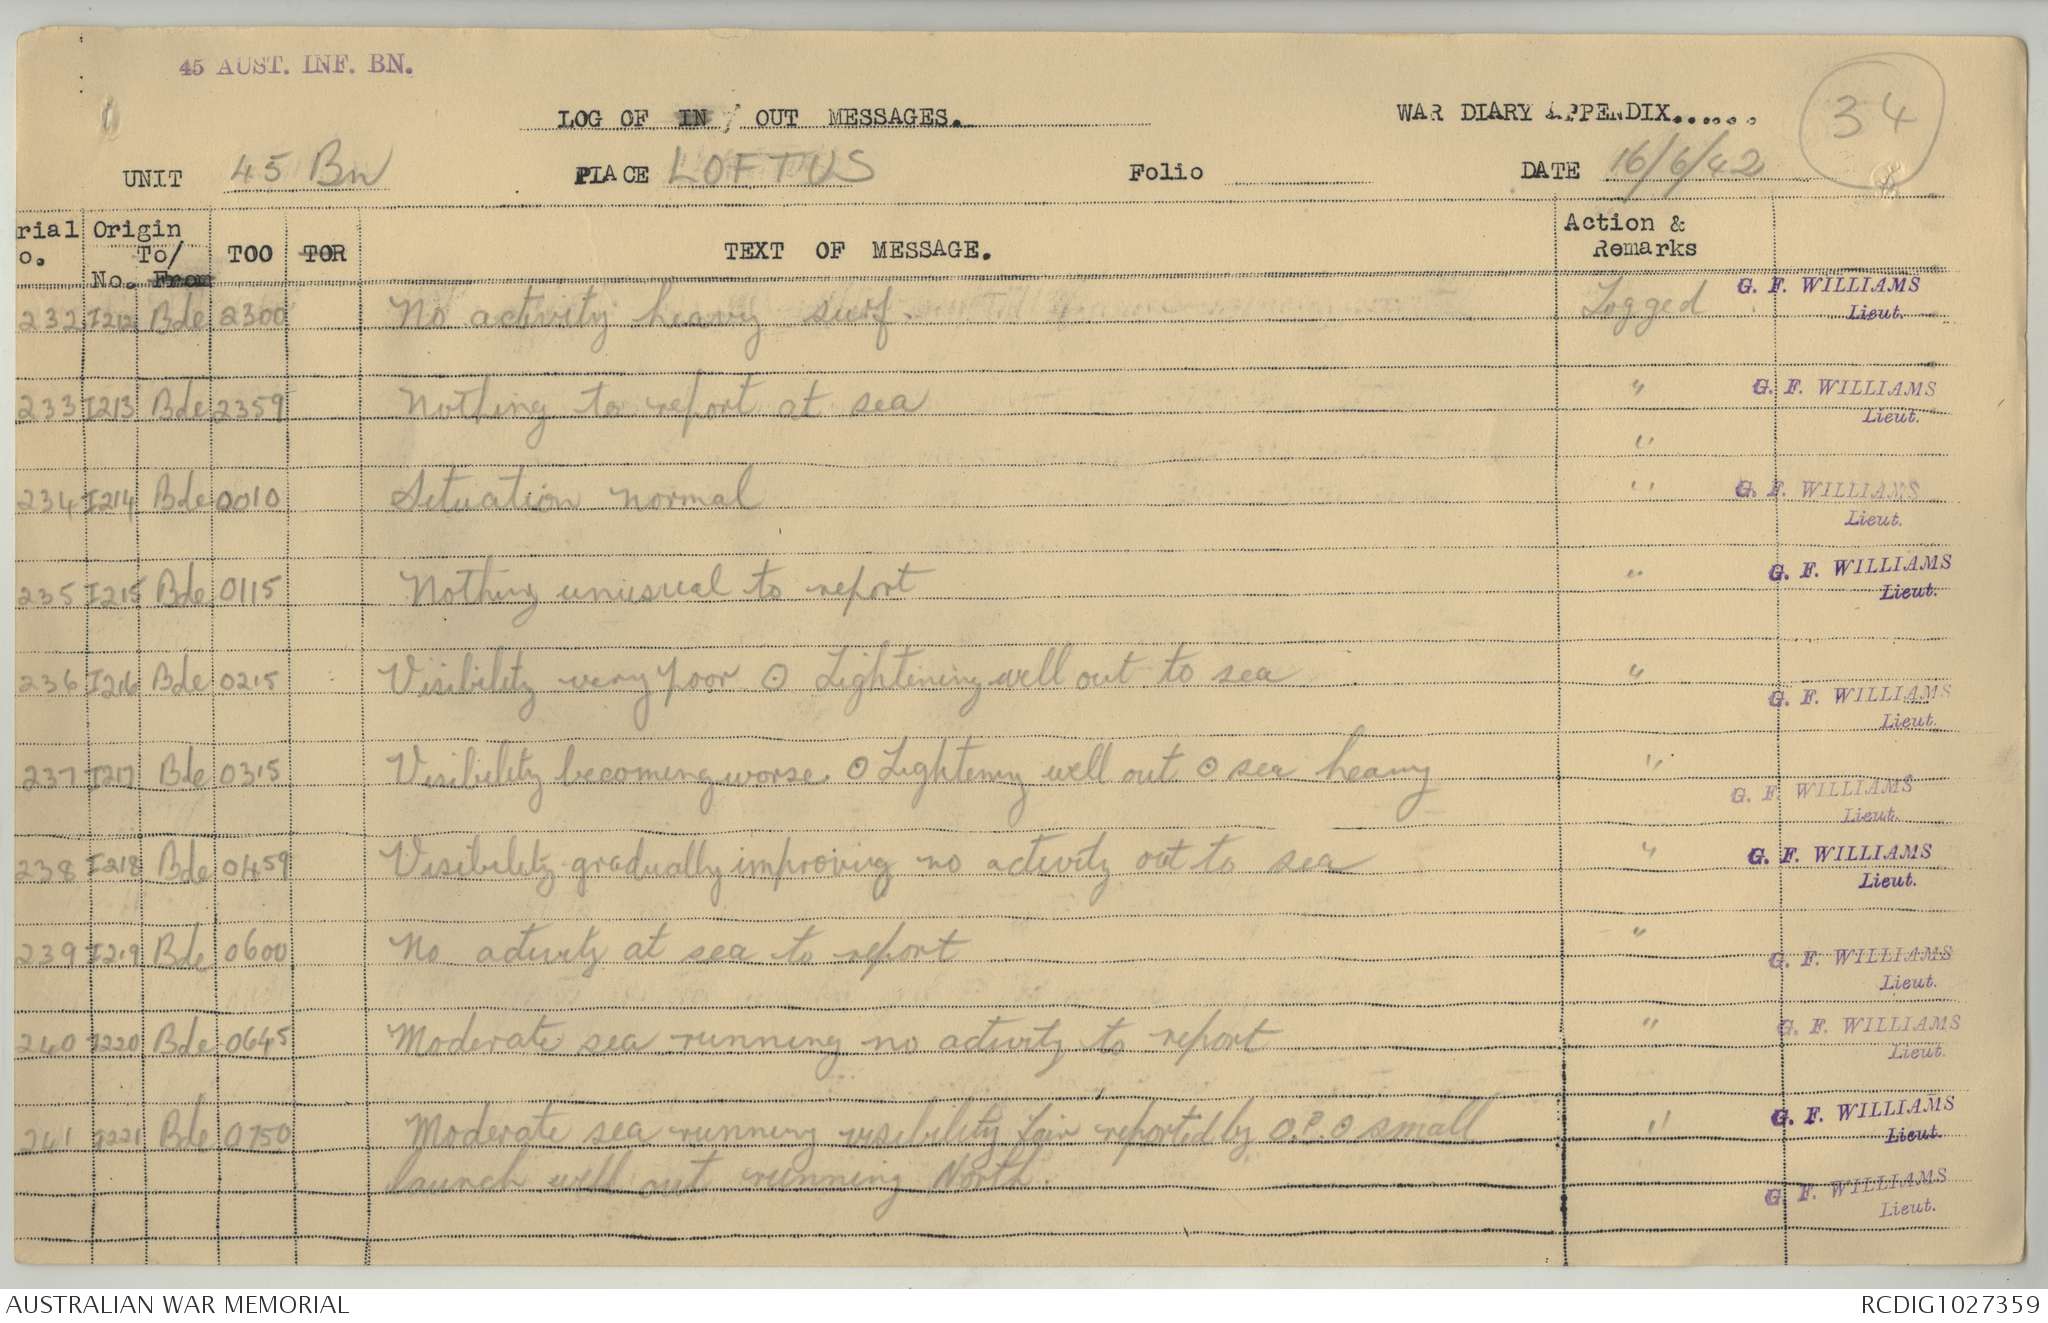 45 AUST. INF. BN.
LOG OF IN / OUT MESSAGES. WAR DIARY APPENDIX...... 34
UNIT 45 Bn PLACE LOFTUS Folio DATE 16/6/42
rial Origin Action &
o. To/ TOO TOR TEXT OF MESSAGE. Remarks
No. From
232 I212 Bde 2300 No activity heavy surf. Logged G. F. WILLIAMS
Lieut.
233 I213 Bde 2359 Nothing to report at sea " G. F. WILLIAMS
Lieut.
"
234 I214 Bde 0010 Situation normal " G. F. WILLIAMS
Lieut.
235 I215 Bde 0115 Nothing unusual to report " G. F. WILLIAMS
Lieut.
236 I216 Bde 0215 Visibility very poor ⊙ Lightening well out to sea " G. F. WILLIAMS
Lieut.
237 I217 Bde 0315 Visibility becoming worse. ⊙ Lightening well out ⊙ sea heavy " G. F. WILLIAMS
Lieut.
238 I218 Bde 0459 Visibility gradually improving no activity out to sea " G. F. WILLIAMS
Lieut.
239 I219 Bde 0600 No activity at sea to report " G. F. WILLIAMS
Lieut.
240 I220 Bde 0645 Moderate sea running no activity to report " G. F. WILLIAMS
Lieut.
241 I221 Bde 0750 Moderate sea running visibility fair reported by O.P. ⊙ small " G. F. WILLIAMS
Lieut.
launch well out running North. G. F. WILLIAMS
Lieut.
AUSTRALIAN WAR MEMORIAL RCDIG1027359